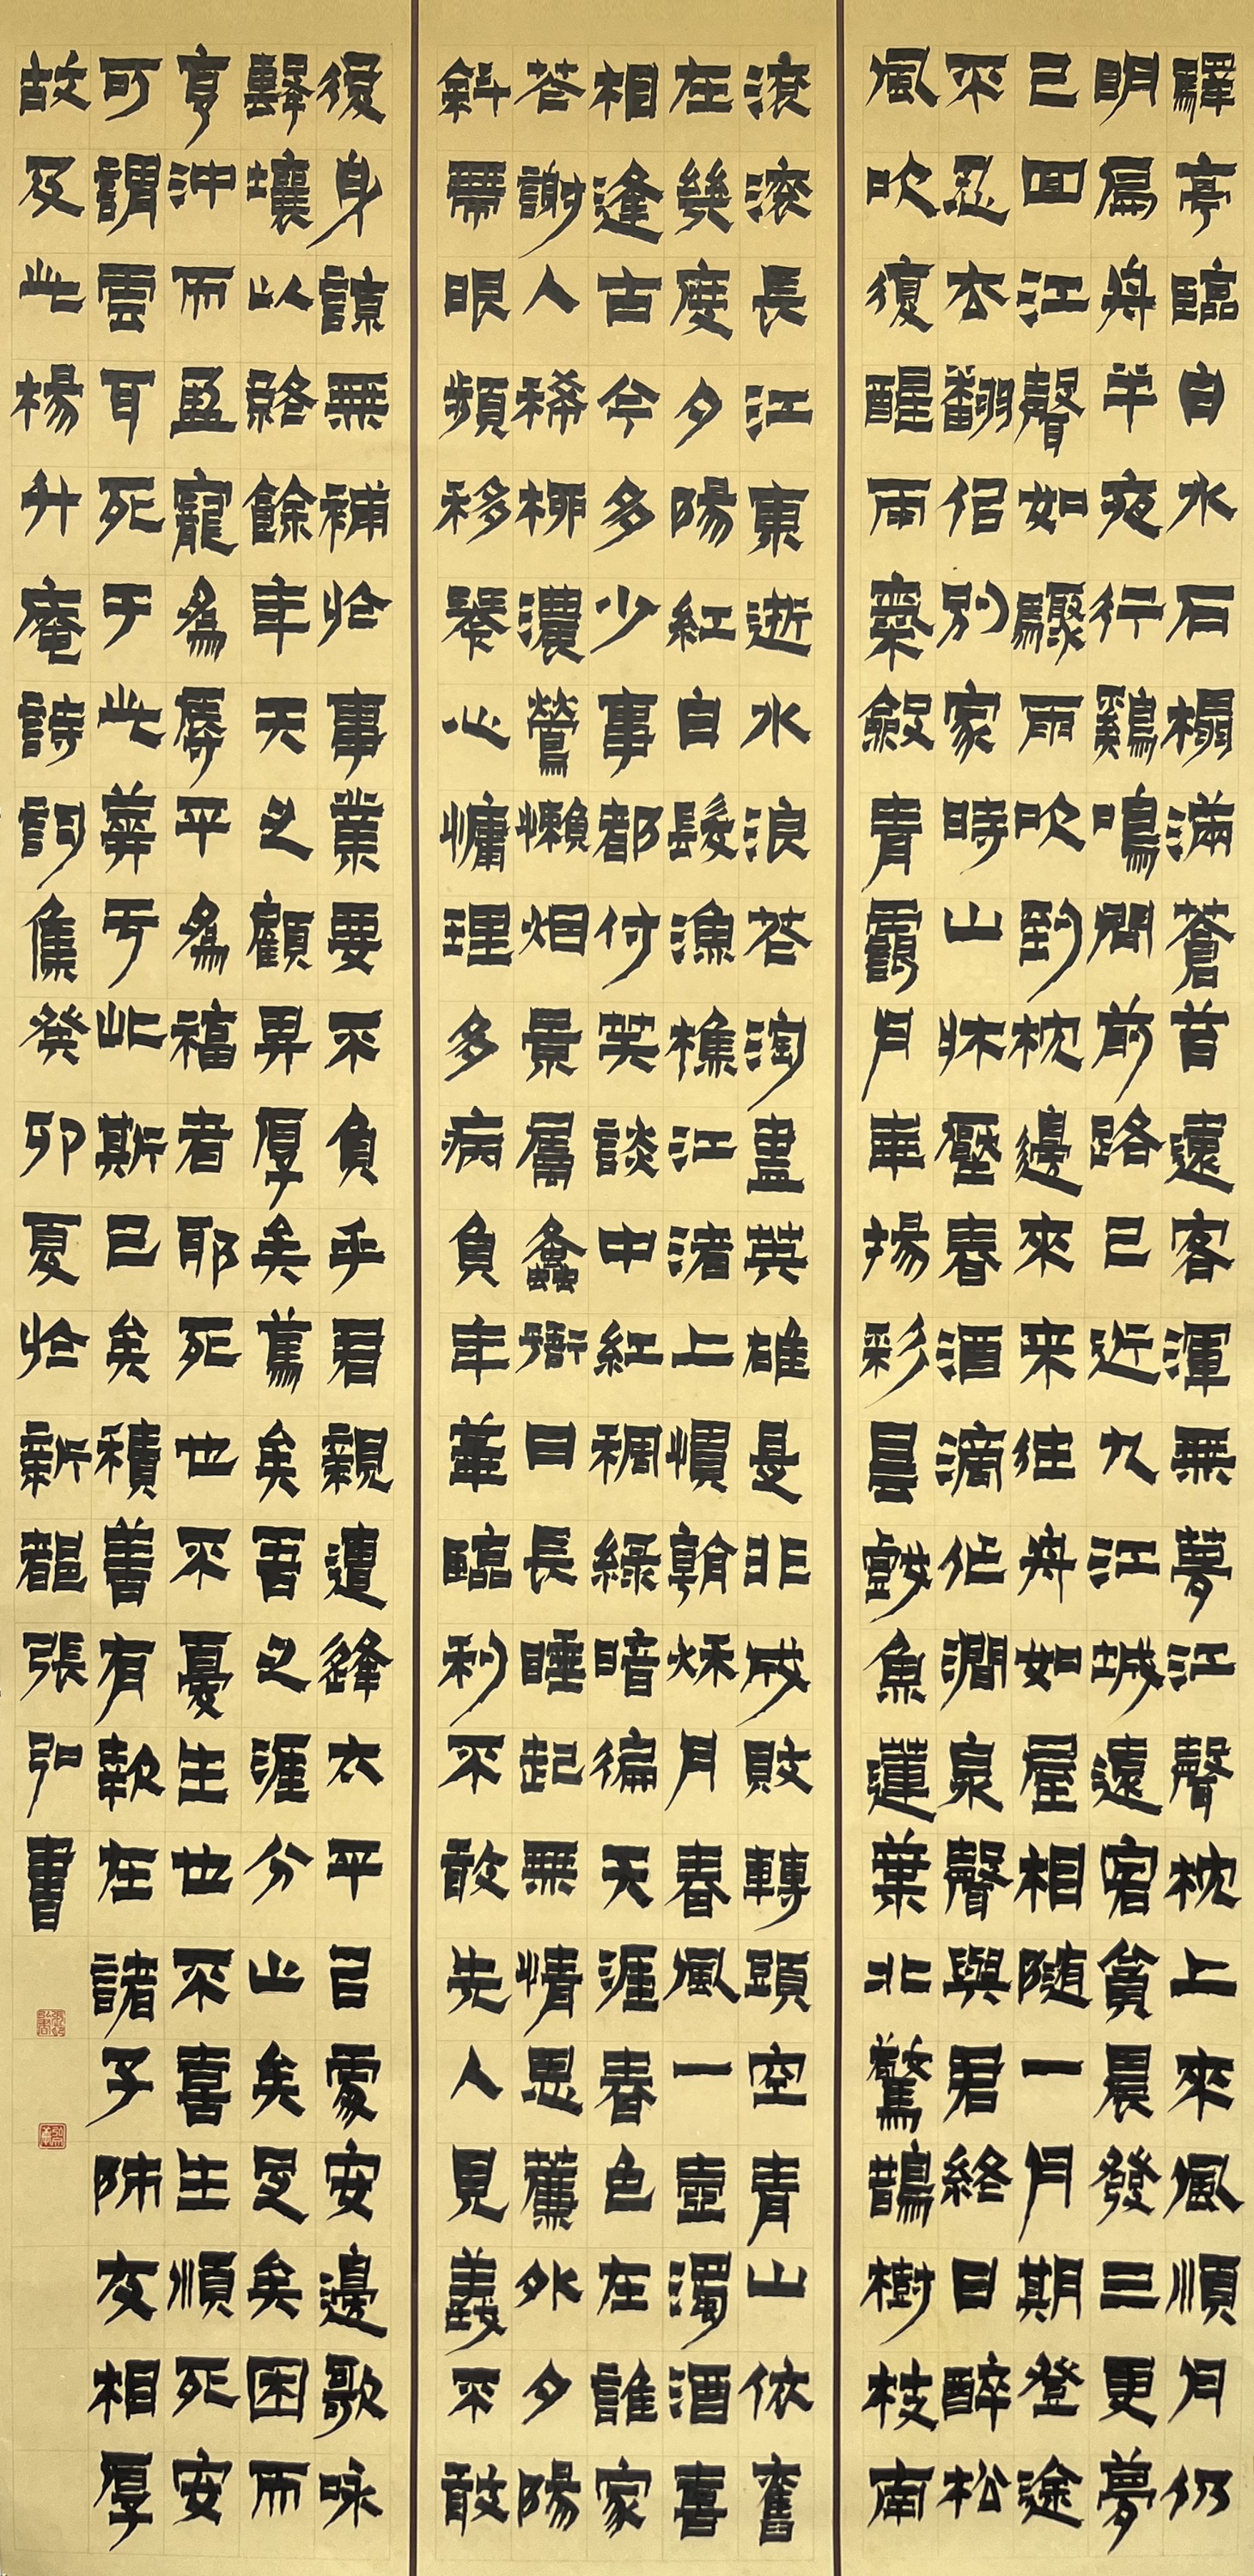 驛亭臨白水石榻滿蒼苔遠客渾無夢江聲枕上來風順月仍
明扁舟半夜行鷄鳴間前路已近九江城遠客貧晨發三更夢
已回江聲如驟雨吹到枕邊來来往舟如屋相隨一月期登途
不忍杏翻侶別家時山牀壓春酒滴作澗泉聲與君終日醉松
風吹復醒雨氣斂青靄月華揚彩曇露魚蓮葉北驚鵲樹枝南
滾滾長江東逝水浪花淘盡英雄是非成敗轉頭空青山依舊
在幾度夕陽紅白髮漁樵江渚上慣看秋月春風一壺濁酒喜
相逢古今多少事都付笑談中紅稠綠暗徧天涯春色在誰家
花謝人稀柳濃鶯懶烟景屬蠭衙日長睡起無情思簾外夕陽
斜帶眼頻移琴心慵理多病負年華臨利不敢先人見義不敢
後身諒無補於事業要不負乎君親遭逢太平以處安邊歌咏
擊壤以終餘年天之顧畀厚矣篤矣吾之涯分止矣足矣困而
亨沖而盈寵爲辱平爲福者耶死也不憂生也不喜生順死安
可謂云耳死于此葬于此斯已矣積善有報在諸子姊友相厚
故及此楊升庵詩詞集癸卯夏於新都張弘書